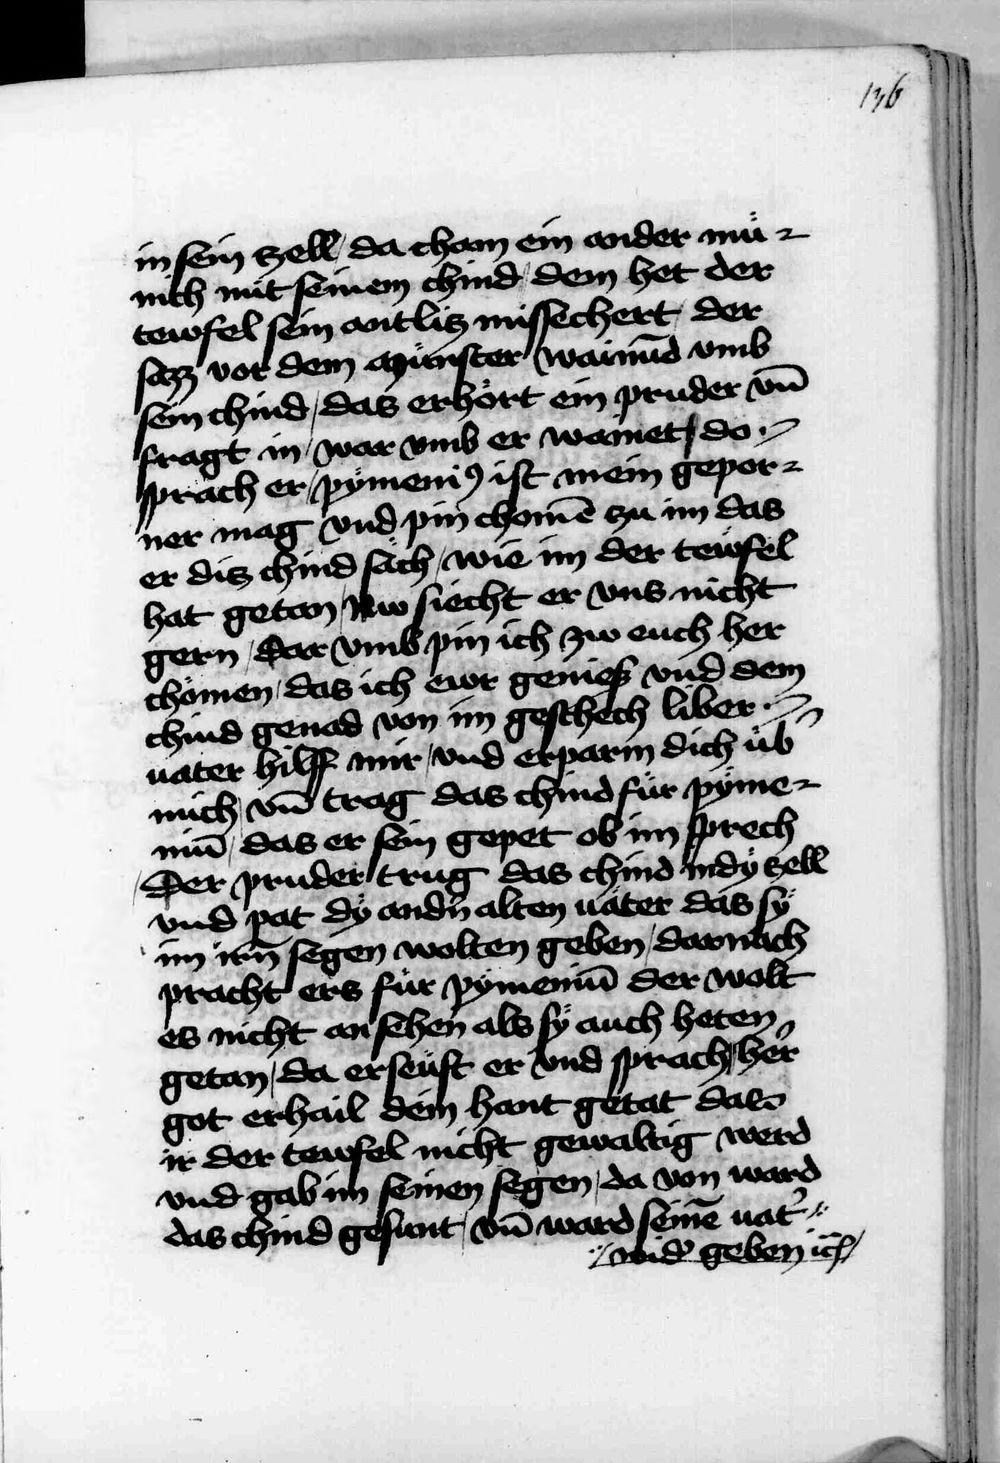 136
in sein zell / da cham ein ander mü-
nich mit seinem chind / dem het der
tewfel sein antlitz missechert / der
sazz vor dem münster wainūd vmb
sein chind / das erhört ein pruder vn̄
fragt in / war vmb er wainet / do
sprach er / pÿmeniꝰ ist mein gepor-
ner mag vnd pin chomē zu im das
er ditz chind säch / wie im der tewfel
hat getan / Nw siecht er vns nicht
gern / dar vmb pin ich zw euch her
chömen / das ich ewr genieß vnd dem
chind genad von im geschech liber
uater hilff mir / vnd erparm dich üb̄
mich / vn̄ trag das chind für pÿme-
niū / das er sein gepet ob im sprech
Der pruder trug das chind in dÿ zell
vnd pat dÿ andn̄ alten uäter das sÿ
im irn̄ segen wolten geben / darnach
pracht ers für pÿmeniū der wolt
es nicht an sehen als sÿ auch heten
getan / da erseüft er vnd sprach / her̄
got erhail dein hant getat das
ir der tewfel nicht gewaltig werd
vnd gab im seinen segen / da von ward
das chind gesunt / vn̄ ward seinē uat̾
wid̾ geben ich